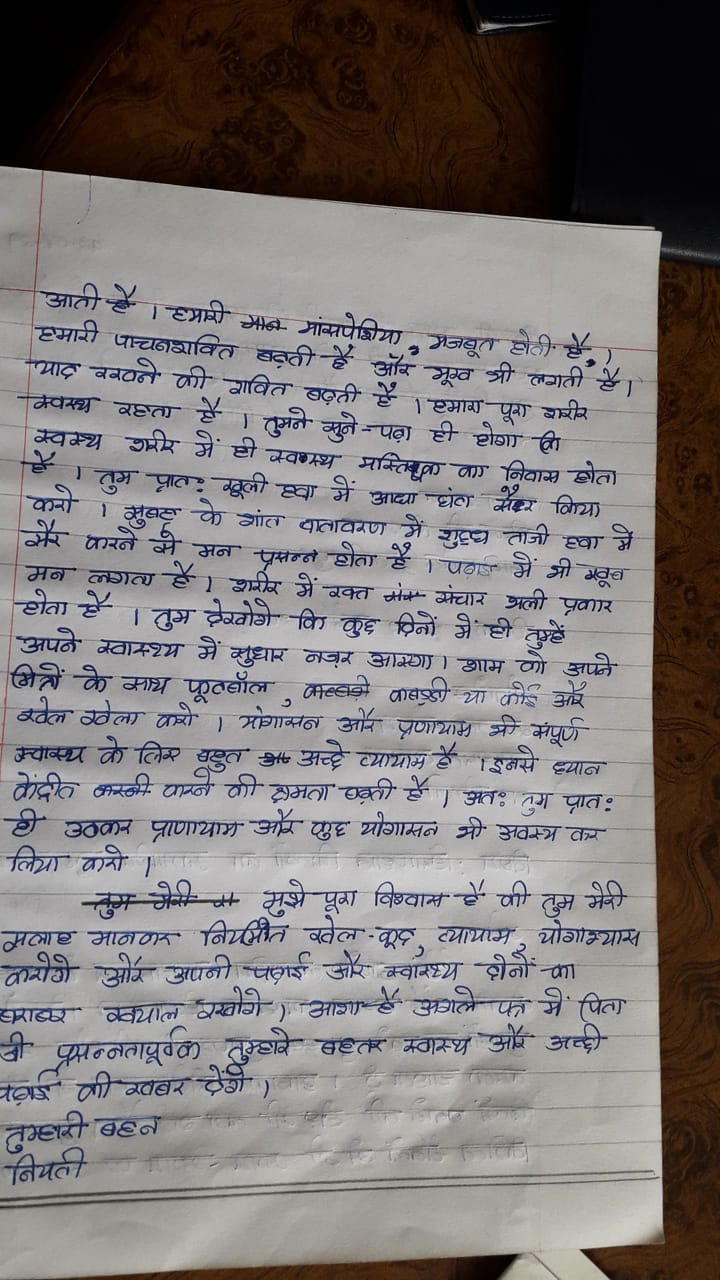 आती है । हमारी मांसपेशिया, मजबूत होती है, ।
हमारी पाचनशक्ति बढ़ती है और भूख भी लगती है।
याद रखने की शक्ति बढ़ती है । हमारा पूरा शरीर
स्वस्थ रहता है । तुमने सुने-पढ़ा ही होगा कि
स्वस्थ शरीर में ही स्वस्थ्य मस्तिष्क का निवास होता
है । तुम प्रातः खूली हवा में आधा घंटा सैर किया
करो । सुबह के शांत वातावरण में शुद्ध ताजी हवा में
सैर करने से मन प्रसन्न होता है । पढ़ाई में भी खूब
मन लगता है । शरीर में रक्त संचार भली प्रकार
होता है । तुम देखोगे कि कुछ दिनों में ही तुम्हें
अपने स्वास्थ्य में सुधार नज़र आएगा। शाम को अपने
मित्रों के साथ फूटबॉल, कबड्डी या कोई और
खेल खेला करो । योगासन और प्रणायाम भी संपूर्ण
स्वास्थ्य के लिए बहुत अच्छे व्यायाम है । इनसे ध्यान
केंद्रीत करने की क्षमता बढ़ती है । अतः तुम प्रातः
ही उठकर प्राणायाम और कुछ योगासन भी अवस्य कर
लिया करो ।
मुझे पूरा विश्वास है की तुम मेरी
सलाह मानकर नियमित खेल-कूद, व्यायाम, योगाभ्यास
करोगे और अपनी पढ़ाई और स्वास्थ्य दोनों का
बराबर खयाल रखोगे । आशा है अगले पत्र में पिता
जी प्रसन्नतापूर्वक तुम्हारे बहतर स्वास्थ और अच्छी
पढ़ाई की खबर देंगे ।
तुम्हारी बहन
नियती